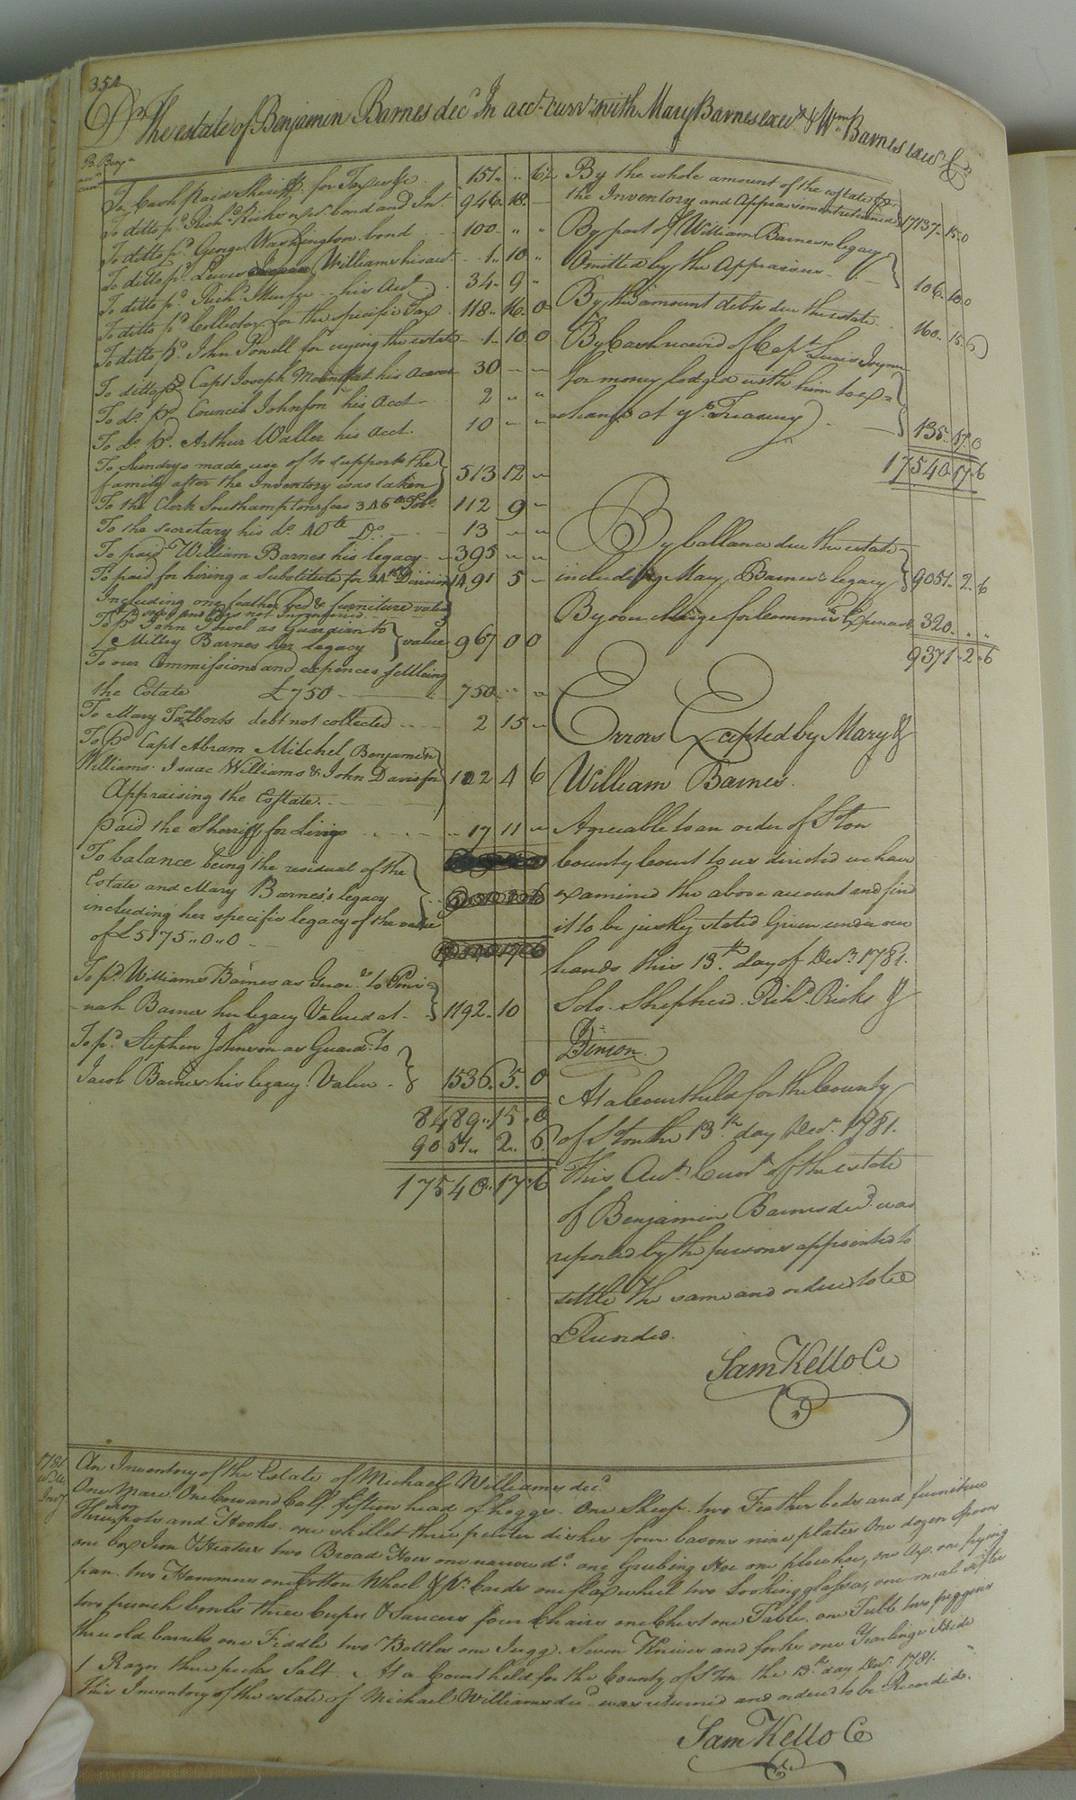 352
Dr The estate of Benjamin Barnes decd In acct currt with Mary Barnes exex & Wm Barnes exer Cr
To Cash Paid Sheriff for Taxes &c 151 " " 6½
To ditto pd Richd Ricks upr bond and Int 946 18 –
To ditto pd George Washington bond 100 " "
To ditto pd Lewis Williams his act 1 10 "
To ditto pd Richd his Act 34 9 "
To ditto pd Collector for the specific Tax 118 16 0
To ditto pd John Powell for crying the estate 1 10 0
To ditto pd Capt Joseph his Account 30 – –
To do pd Council Johnson his Acct 2 " "
To do pd Arthur Waller his acct. 10 – –
To Sundrys made use of to support the
family after the Inventory was taken } 513 12 –
To the Clerk Southampton fees 346 lb Tobo 112 9 –
To the secretary his do 40 lb Do 13 – –
To paid William Barnes his legacy 395 – –
To paid for hiring a Substitute for 24th Division 1491 5 –
Including one feather bed & furniture value
To pd John as Guardian to
Milley Barnes her legacy } value 967 0 0
To our Commissions and expences settleing
the Estate £750 750 " "
To Mary Talbots debt not collected 2 15 –
To pd Capt Abram Mitchel Benjamin
Williams Isaac Williams & John Davis for } 122 4 6
Appraising the Estate
paid the Sherriff for Livys 17 11 –
To balance being the residual of the
Estate and Mary Barnes's legacy
including her specific legacy of the value
of £5175 " 0 " 0
To pd William Barnes as Guar. to
nah Barnes her legacy Valued at } 1192 10
To pd Stephen Johnson as Guard. to
Jacob Barnes his legacy Value } 1536 5 0
8489 15 0
9051 2 6
17540 17 6
By the whole amount of the estate
the Inventory and Appraisment returned 17137 15 0
By part of William Barnes legacy
Omitted by the Appraisers } 106 10 0
By the amount debts due the estate 160 15 6
By Cash received of Capt Lewis
for money lodged with him to ex=
change at ye Treasury } 135 17 0
17540 17 6
By ballance due the estate
including Mary Barnes's legacy } 9051 2 6
By our charge for commisn & Expences 320 " "
9371 2 6
Errors Excepted by Mary &
William Barnes
Agreeable to an order of Ston
County Court to us directed we have
examined the above account and find
it to be justly stated Given under our
hands this 13th day of Decr 1781.
Solo. Shepherd Richd Ricks
Denson
At a Court held for the County
of Ston the 13th day Decr 1781.
This Acct Currt of the estate
of Benjamin Barnes decd was
reported by the persons appointed to
settle The same and ordered to be
Recorded.
Sam Kello Cc
1781
An Inventory of the Estate of Michael Williams decd
One Mare One Cow and Calf fifteen head of hoggs one Sheep two Feather beds and furniture
Three Iron pots and Hooks one skillet three pewter dishes four basons nine plates One dozen Spoon
one box Iron & Heaters two Broad Hoes one narrow do one Grubing Hoe one plow hoe, one ax, one frying
pan two Hammers one Cotton Wheel & pr Cards one flax wheel two Looking glasses, one meal sifter
two punch bowls three Cups & Saucers four Chairs one Chest one Table, one Tubb two piggens
three old barrels one Fiddle two Bottles one Jugg Seven Knives and forks one Yearlinge Hide
1 Razor three pecks Salt At a Court held for the County of Ston the 13th day Decr 1781.
This Inventory of the estate of Michael Williams decd was returned and ordered to be Recorded.
Sam Kello Cc